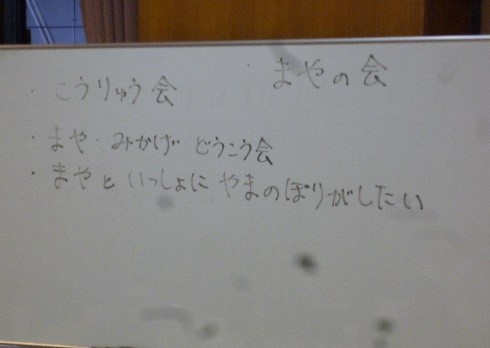 ・こうりゅう会
・まやの会
・まや・みかげ どうこう会
・まやと いっしょに やまのぼりがしたい